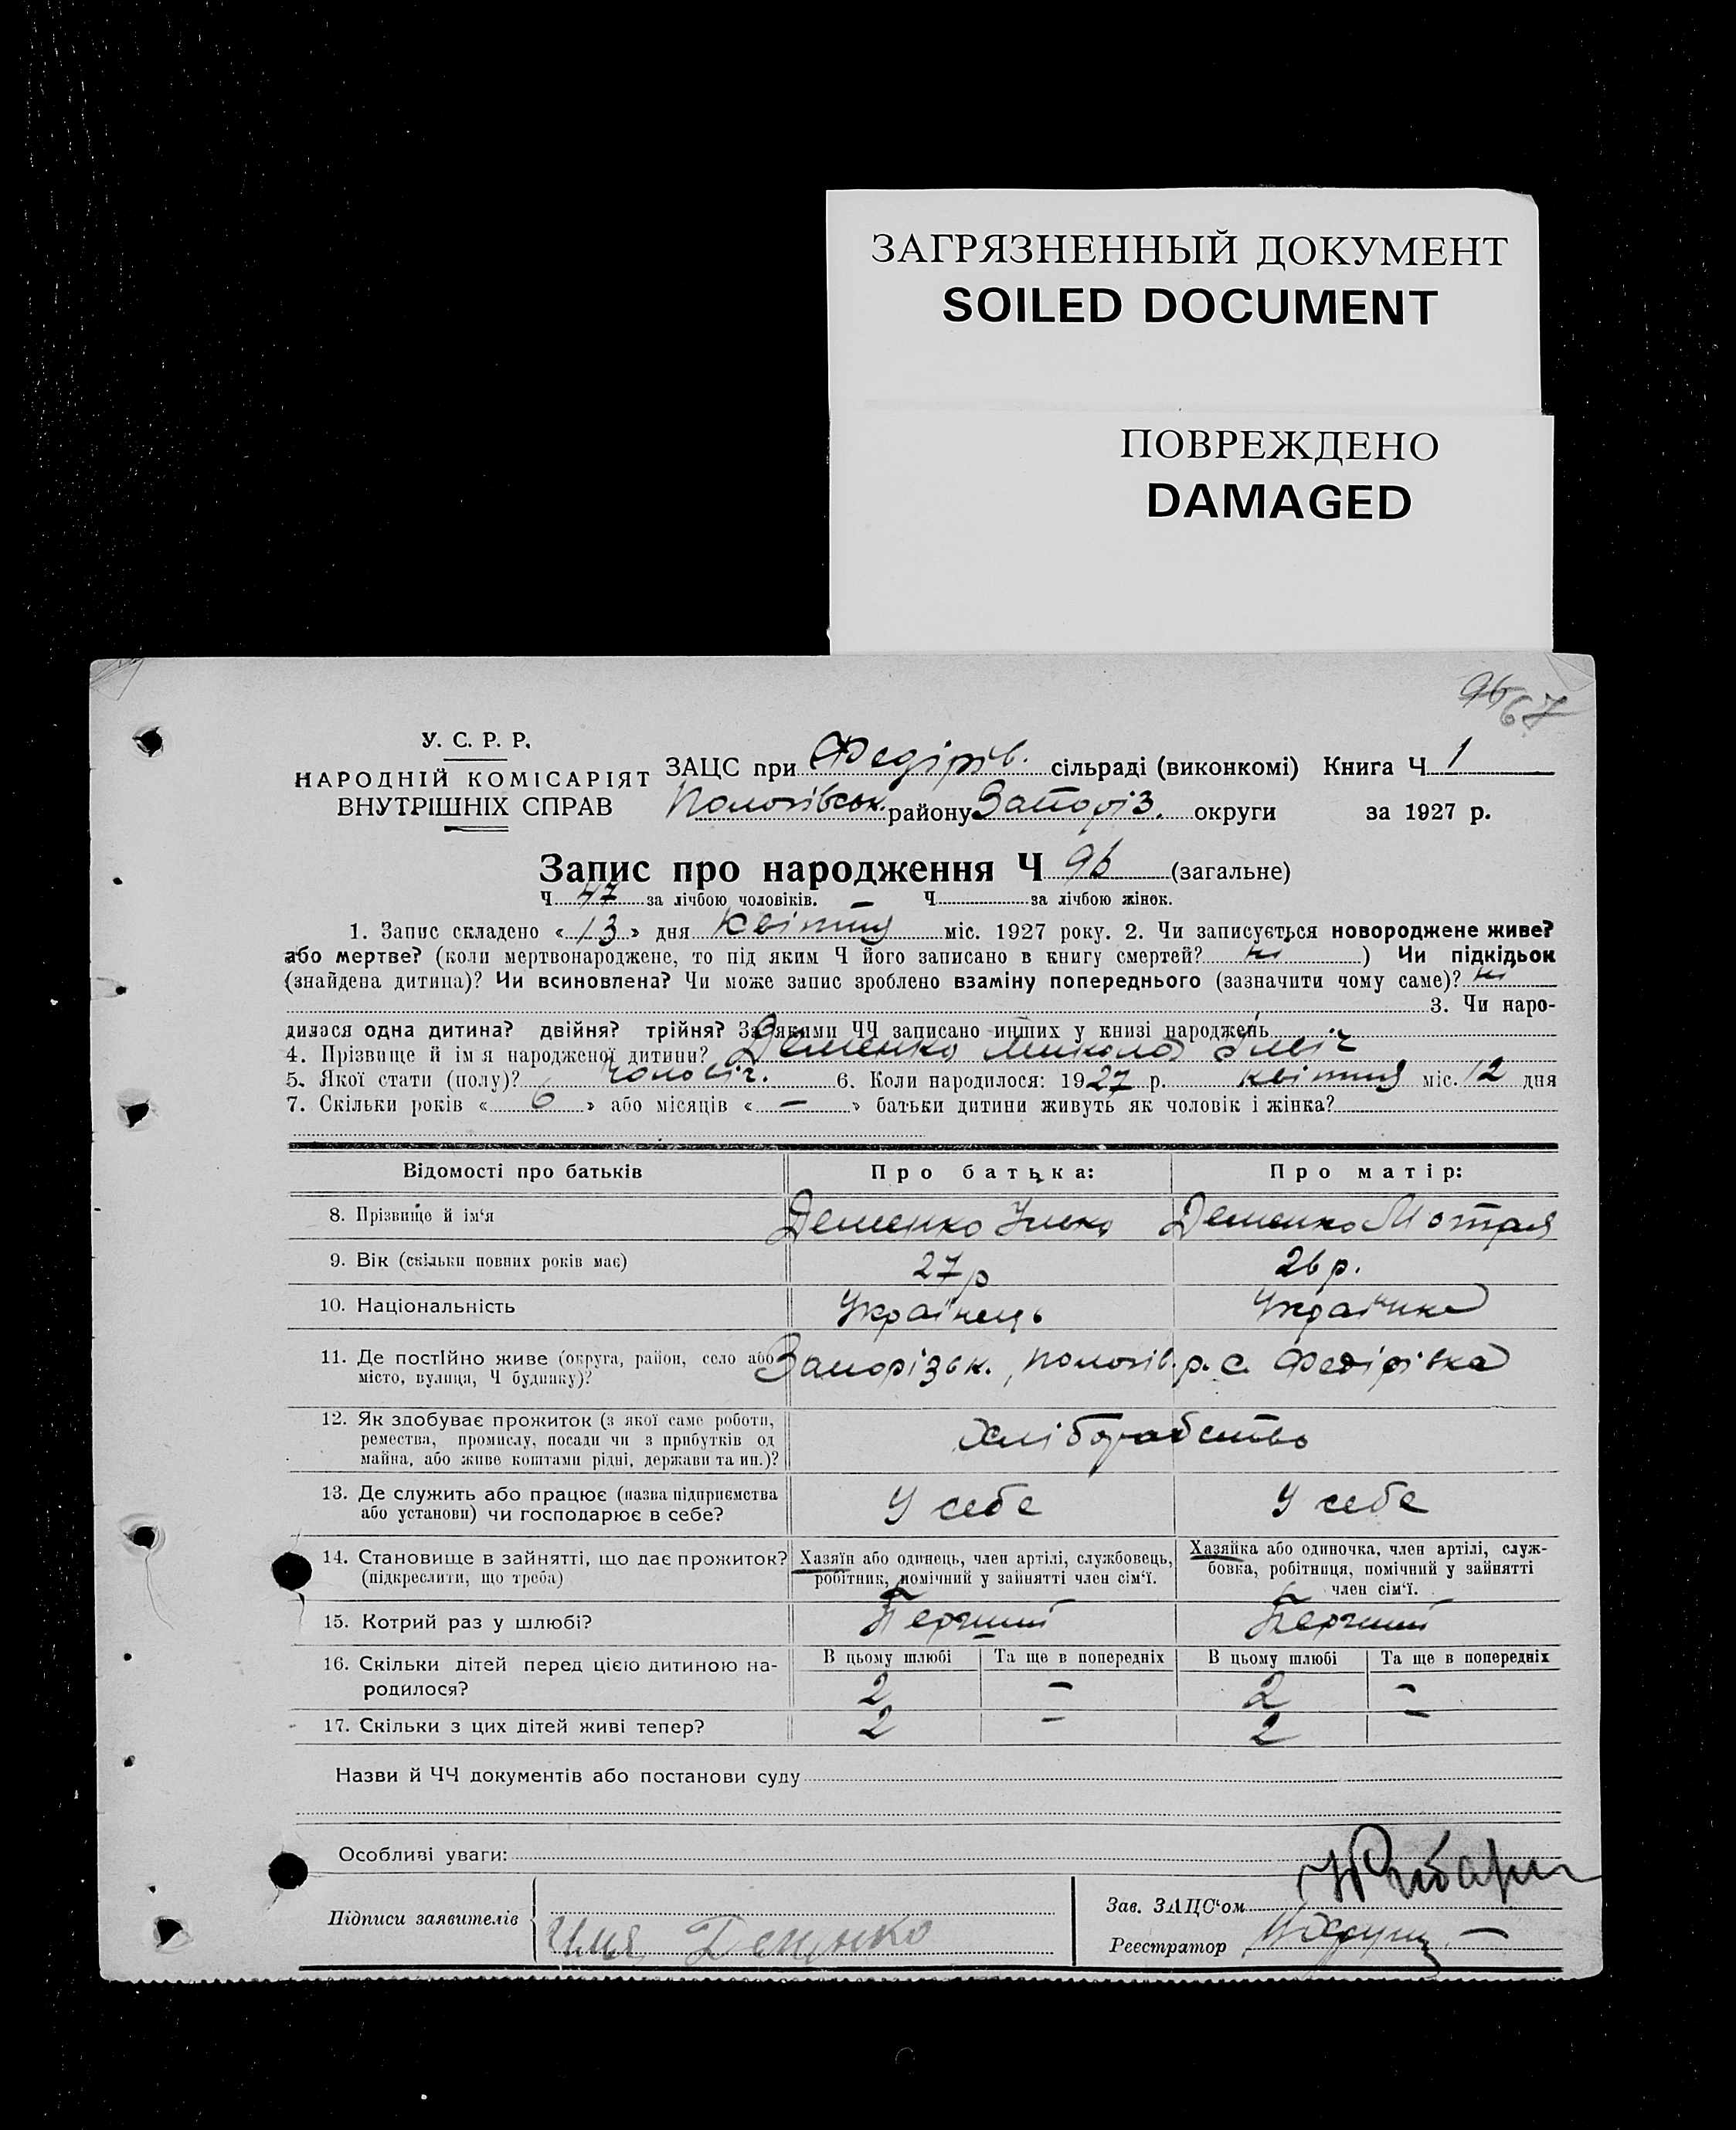 ЗАГРЯЗНЕННЫЙ ДОКУМЕНТ
SOILED DOCUMENT
ПОВРЕЖДЕНО
DAMAGED
96 67
У. С. Р. Р.
НАРОДНІЙ КОМІСАРІЯТ
ВНУТРІШНІХ СПРАВ
ЗАЦС при Федірів. сільраді (виконкомі) Книга Ч 1
Пологівськ. району Запоріз. округи за 1927 р.
Запис про народження Ч 96 (загальне)
Ч 47 за лічбою чоловіків. Ч — за лічбою жінок.
1. Запис складено « 13 » дня Квітня міс. 1927 року. 2. Чи записується новороджене живе?
або мертве? (коли мертвонароджене, то під яким Ч його записано в книгу смертей? ні ) Чи підкідьок
(знайдена дитина)? Чи всиновлена? Чи може запис зроблено взаміну попереднього (зазначити чому саме)? ні
3. Чи наро-
дилася одна дитина? двійня? трійня? За якими ЧЧ записано инших у книзі народжень
4. Прізвище й ім'я народженої дитини? Деменко Микола Ілліч
5. Якої стати (полу)? чоловіч. 6. Коли народилося: 1927 р. квітня міс. 12 дня
7. Скільки років « 6 » або місяців « — » батьки дитини живуть як чоловік і жінка?
Відомості про батьків Про батька: Про матір:
8. Прізвище й ім'я Деменко Деменко Мотря
9. Вік (скільки повних років має) 27 р 26 р.
10. Національність Українець Українка
11. Де постійно живе (округа, район, село або Запорізьк., Пологів. р. с. Федірівка
місто, вулиця, Ч будинку)?
12. Як здобуває прожиток (з якої саме роботи,
ремества, промислу, посади чи з прибутків од Хліборобство
майна, або живе коштами рідні, держави та ин.)?
13. Де служить або працює (назва підприємства У себе У себе
або установи) чи господарює в себе?
14. Становище в зайнятті, що дає прожиток? Хазяїн або одинець, член артілі, службовець, Хазяйка або одиночка, член артілі, служ-
(підкреслити, що треба) робітник, помічний у зайнятті член сім'ї. бовка, робітниця, помічний у зайнятті
член сім'ї.
15. Котрий раз у шлюбі? Перший Перший
16. Скільки дітей перед цією дитиною на- В цьому шлюбі Та ще в попередніх В цьому шлюбі Та ще в попередніх
родилося? 2 — 2 —
17. Скільки з цих дітей живі тепер? 2 — 2 —
Назви й ЧЧ документів або постанови суду
Особливі уваги:
Зав. ЗАЦС'ом
Підписи заявителів
Реєстратор